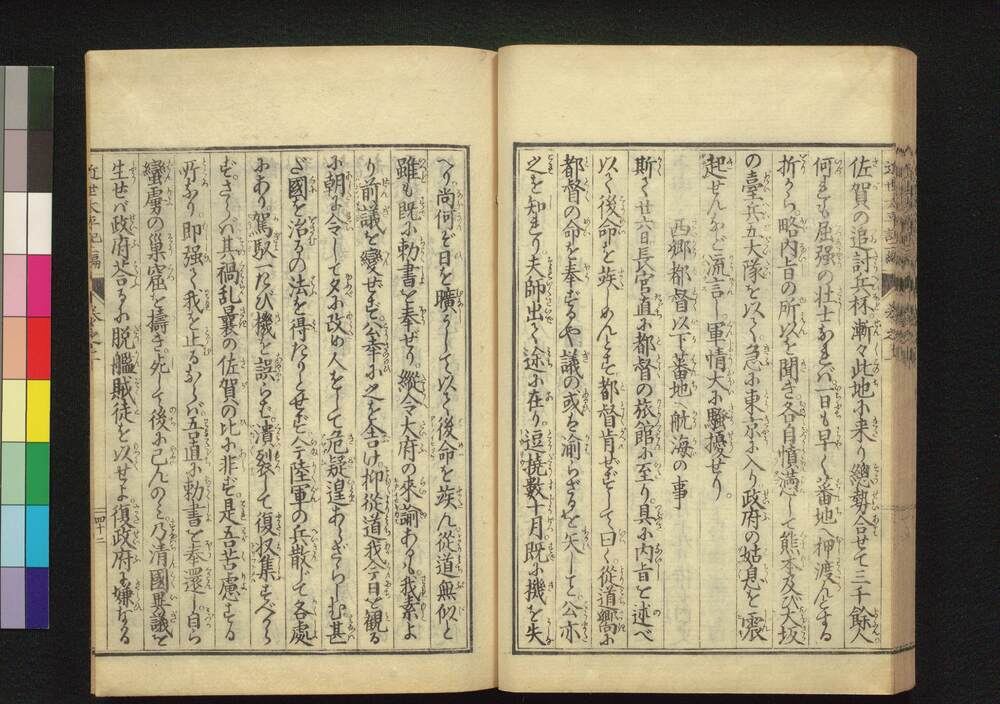 佐賀の追討兵杯漸々此地に来り總勢合せて三千餘人
何まも屈强の壮士なまバ一日も早く蕃地へ押渡んとする
折から略内旨の所以を聞き各自憤懣して熊本及び大坂
の臺兵五大隊を以て急に東京に入り政府の姑息を震
起せんなど流言し軍情大に騒擾せり
西郷都督以下蕃地へ航海の事
斯く廿六日長官直に都督の旅館に至り具に内旨を述べ
以て後命を竢しめんとす都督肯ぜずして曰く從道嚮に
都督の命を奉ずるや議の或る渝らざるを矢して公亦
之を知まり夫師出て途に在り逗撓數十月既に機を失
へり尚何ぞ日を曠ふして以て後命を竢ん從道無似と
雖も既に勅書を奉ぜり縱令大府の來諭あるも我素よ
り前議を變せず公幸に之を告け抑從道我今日を觀る
に朝に令して夕に改め人をして危疑遑あらざらしむ甚
ざ國を治るの法を得たりとせず今陸軍の兵散じて各處
にあり駕馭一たび機を誤らむ潰裂して復収集すべから
ずさらバ其禍乱曩の佐賀の比に非ず是吾苦慮する
所なり即强て我を止るならバ吾直に勅書を奉還し自ら
蠻虜の巣窟を擣き死して後に已んのミ乃清國異議を
生せバ政府荅るに脱艦賊徒を以せよ復政府に嫌なる
近世太平記二編
四十二